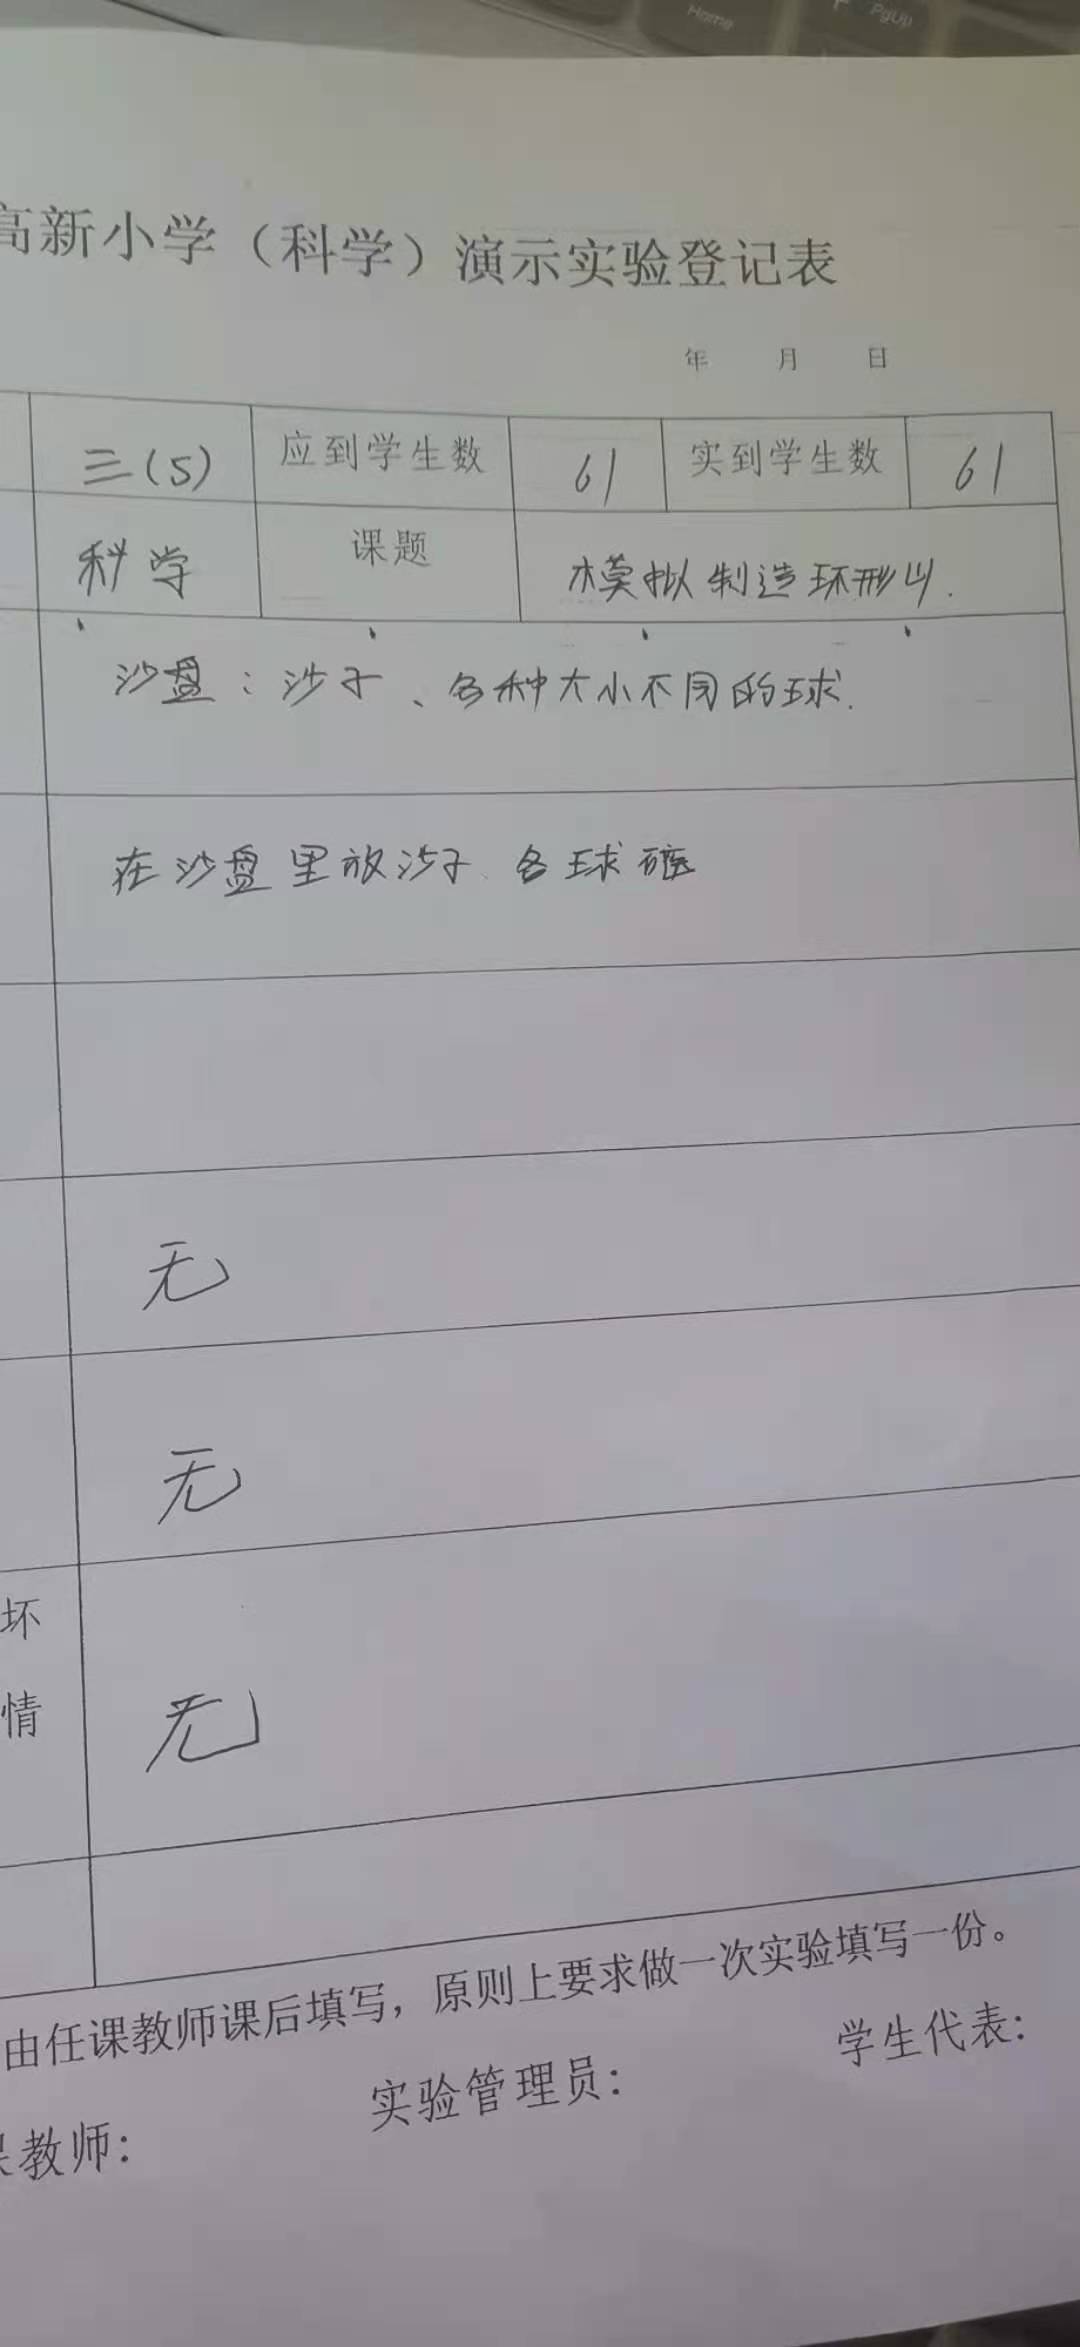 Home PgUp
高新小学（科学）演示实验登记表
年 月 日
三(5) 应到学生数 61 实到学生数 61
科学 课题 模拟制造环形山.
沙盘：沙子、各种大小不同的球.
在沙盘里放沙子、各球砸
无
无
坏
情
无
由任课教师课后填写，原则上要求做一次实验填写一份。
课教师： 实验管理员： 学生代表：